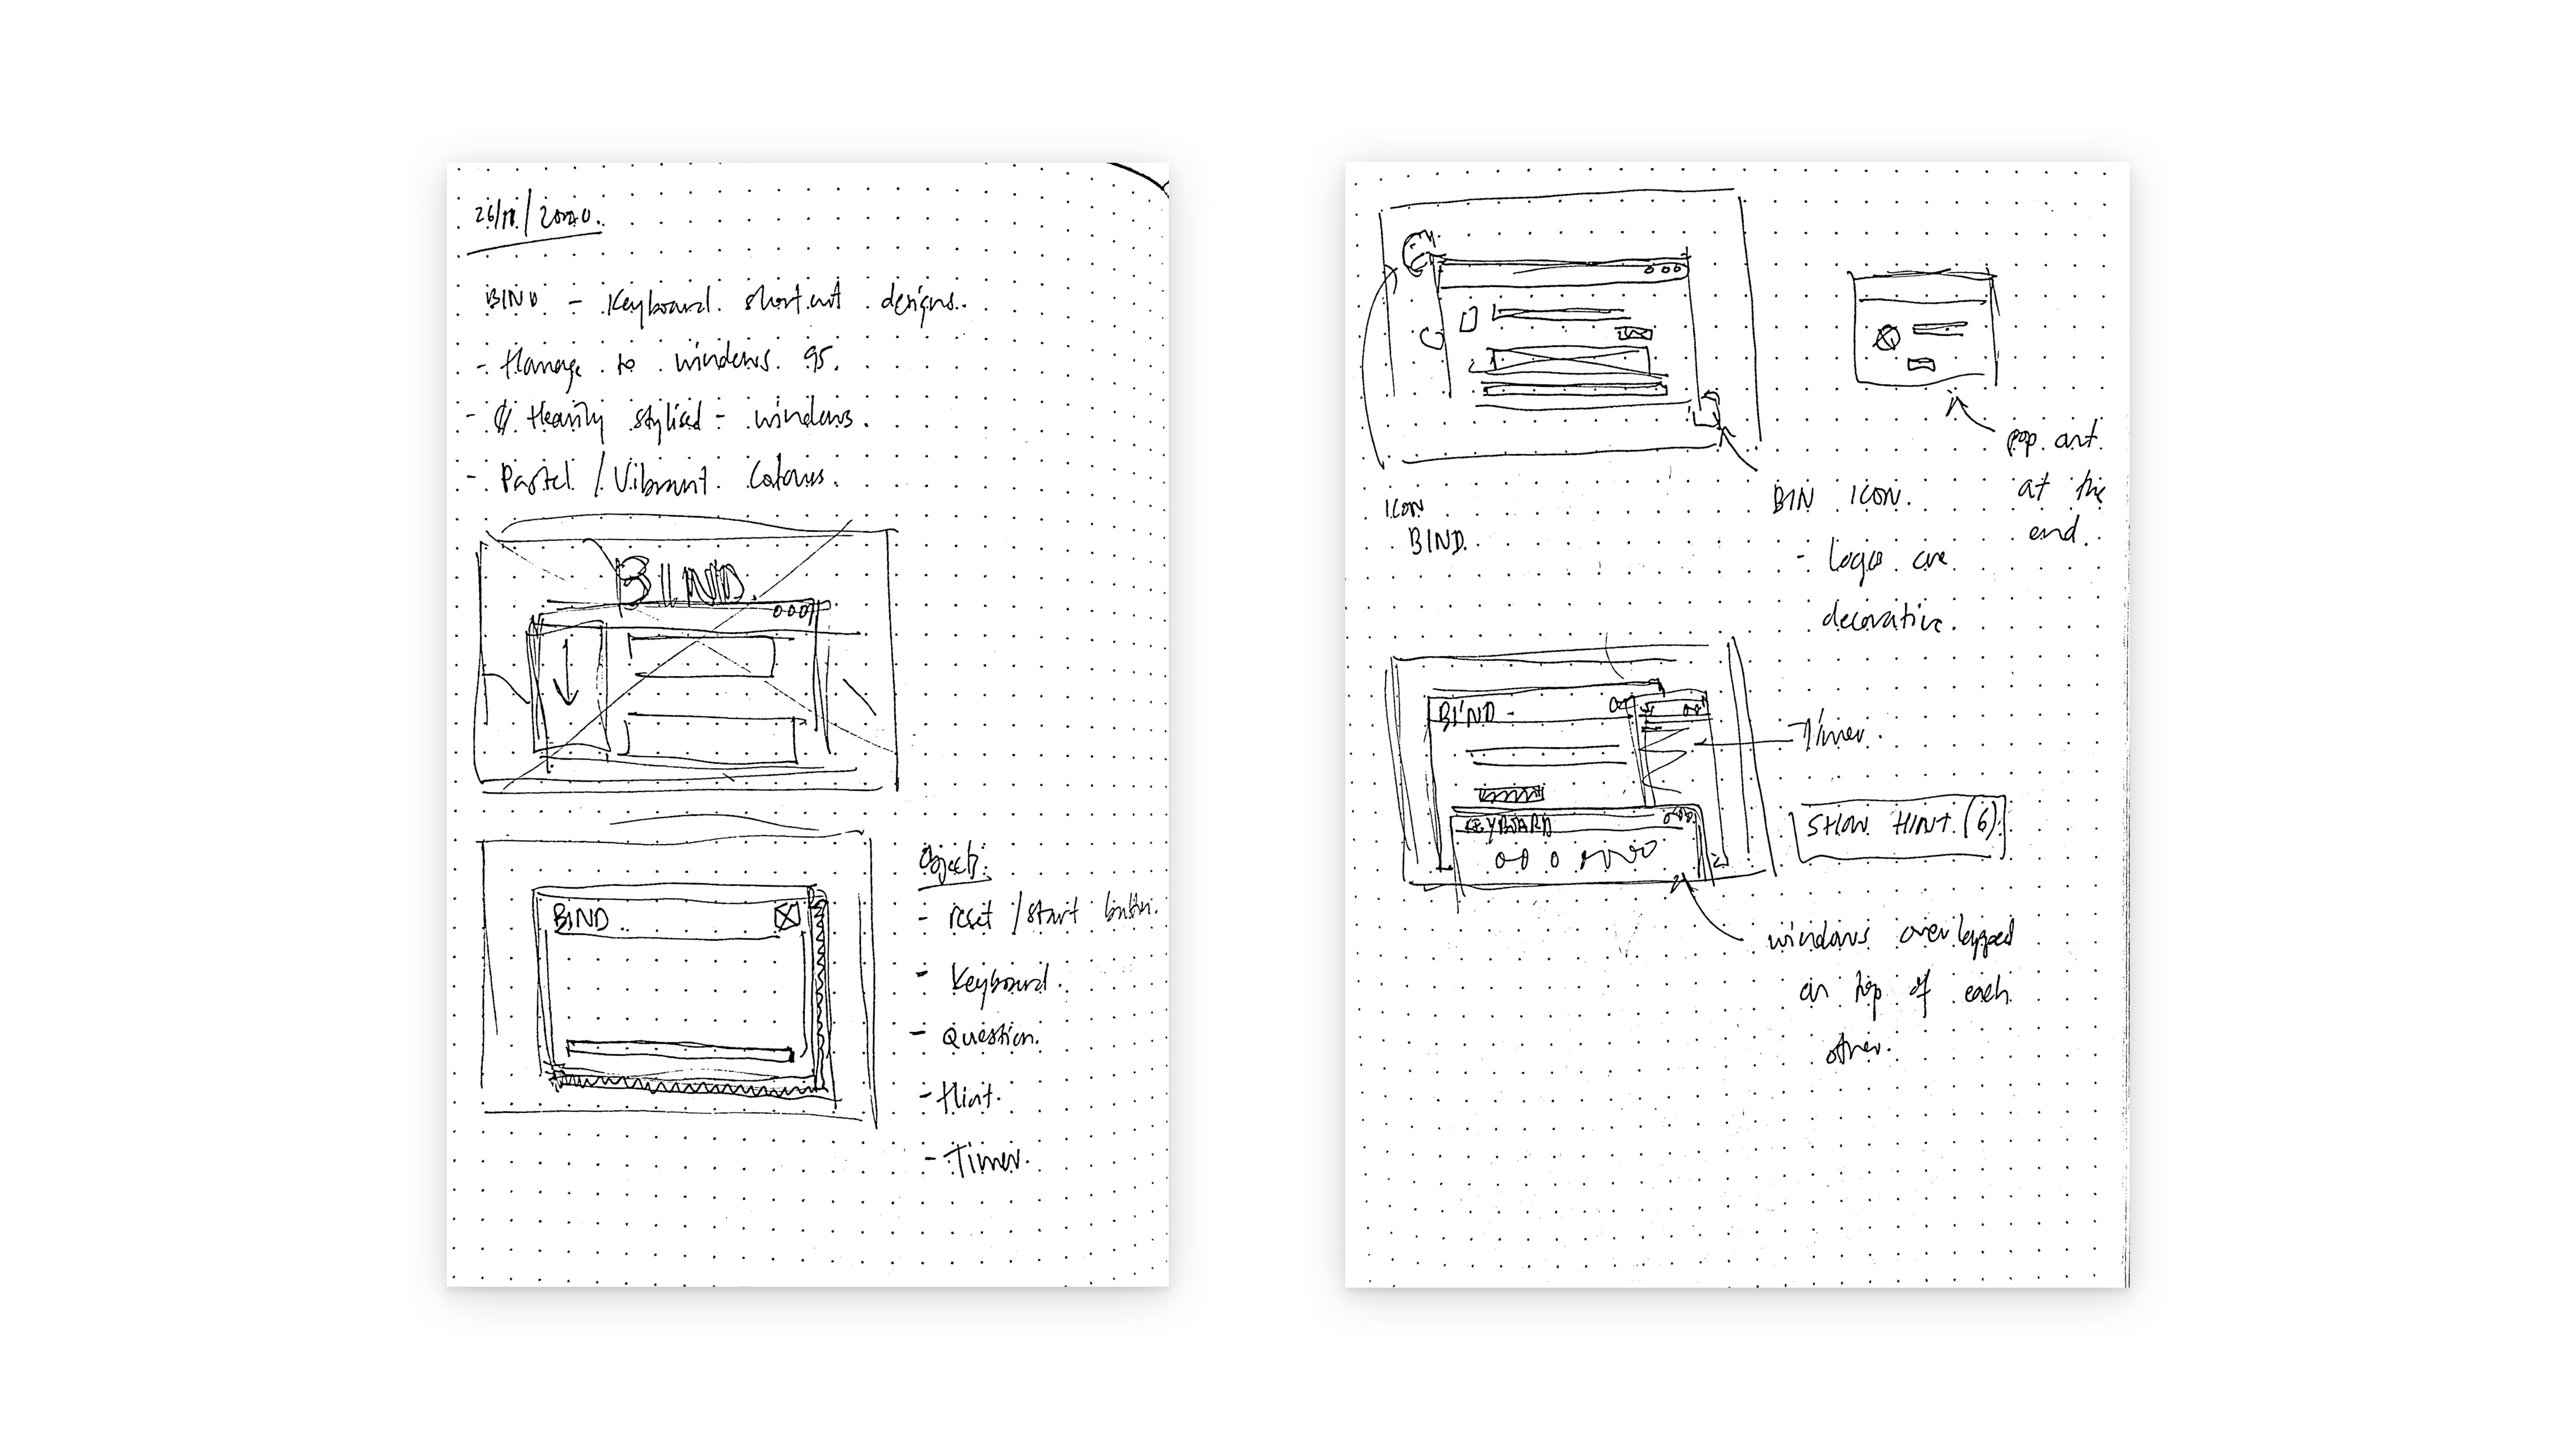 26/11/2020.
BIND - Keyboard shortcut designs.
- Homage to windows 95.
- Heavily stylised - windows.
- Pastel / Vibrant Colours.
BIND.
BIND
Objects:
- reset / start button.
- Keyboard.
- Question.
- Hint.
- Timer.
ICON
BIND.
BIN ICON.
- Logos are
decorative.
pop out
at the
end.
BIND -
KEYBOARD
Timer.
SHOW HINT (6)
windows overlapped
on top of each
other.